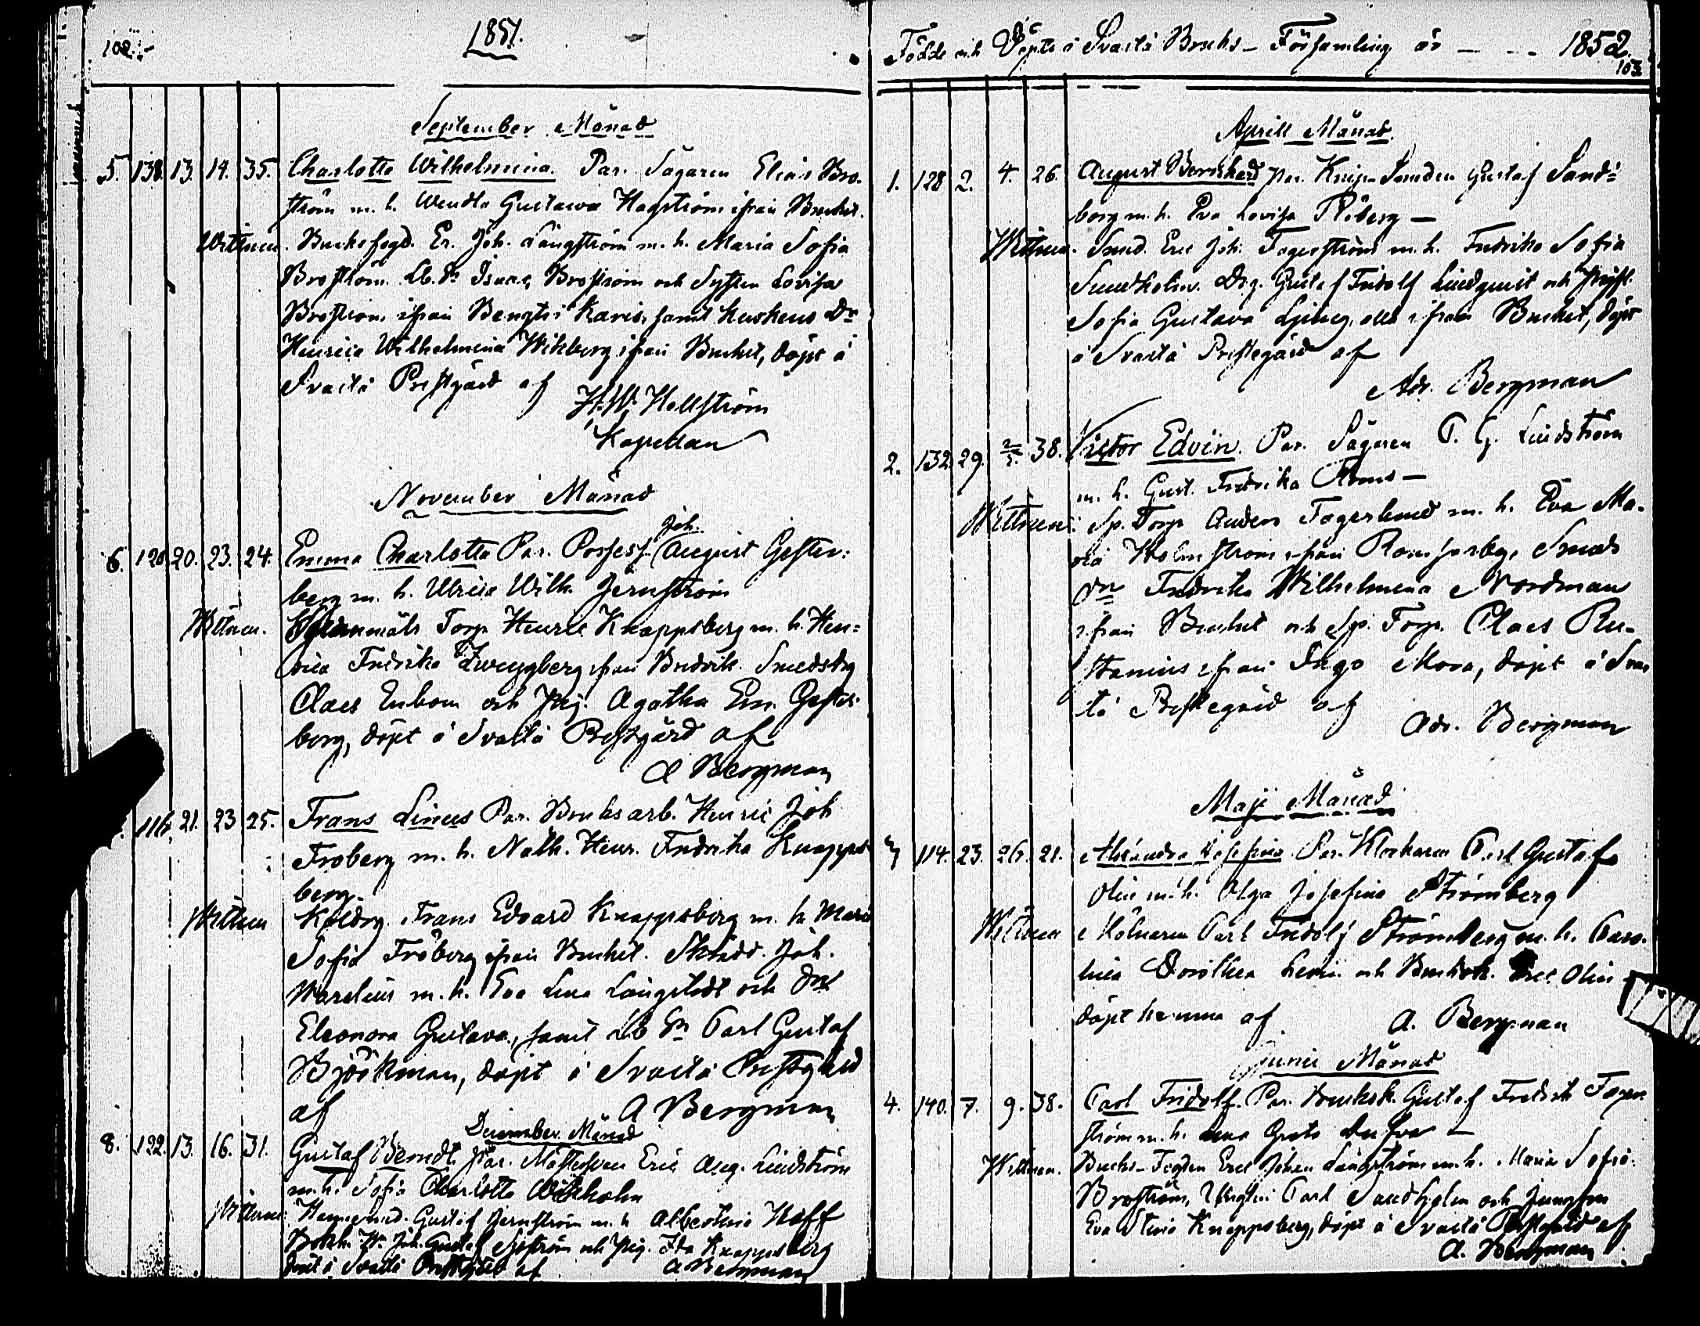 102.
1851.
September Månad
5. 138. 13. 14. 35. Charlotta Wilhelmina. Par. Sågaren Elias Bro-
ström m. h. Wendla Gustawa Hagström ifrån Bruket.
Wittnen. Bruksfogd. Er. Joh. Långström m. h. Maria Sofia
Broström. Isaac Broström och Lovisa
Broström ifrån Karis, samt Kuskens Dr
Henrica Wilhelmina Wikberg ifrån Bruket, döpt å
Svartå Prestgård af
H. W. Hellström
Kapellan
November Månad
6. 120. 20. 23. 24. Emma Charlotta Par. Joh. August Gester-
berg m. h. Ulrica Wilh. Jernström
Wittnen. Torp. Henric Knappsberg m. h. Hen-
rica Fredrika Zweygberg ifrån Smedsdrg
Claes Enbom och Pig. Agatha Em. Gester-
berg, döpt å Svartå Prestgård af
A Bergman
116. 21. 23. 25. Frans Lineus Par. Bruksarb. Henric Joh
Froberg m. h. Nath. Henr. Fredrika Knapps-
berg.
Wittnen Koldrg. Frans Edvard Knappsberg m. h. Maria
Sofia Fröberg ifrån Bruket. Skrädd. Joh.
Warelius m. h. Eva Lena Långstedt och
Eleonora Gustava, samt Carl Gustaf
Björkman, döpt å Svartå Prestgård
af A Bergman
December Månad
8. 122. 13. 16. 31. Gustaf Berndt. Par. Eric Aug. Lindström
m. h. Sofia Charlotta Wikholm
Wittnen Hammarsmed. Gustaf Jernström m. h. Albertina Hoff
Joh. Gustaf Sjöström och Pig. Ida Knappsberg
döpt å Svartå Prestgård af A Bergman
Födde och Döpte i Svartå Bruks-Församling år - - - 1852.
103.
Aprill Månad.
1. 128. 2. 4. 26. August Bernhard Par. Gustaf Sand-
borg m. h. Eva Lovisa
Wittnen. Smed. Eric Joh. Fagerström m. h. Fredrika Sofia
Sundholm. Drg. Gustaf Fridolf Lindqvist och
Sofia Gustava Ljung, alla ifrån Bruket, döpt
å Svartå Prestegård af
Adr. Bergman
2. 132. 29. 2/5. 38. Victor Edvin. Par. Sågaren C. G. Lindström
m. h. Gust. Fredrika
Wittnen: Sp. Torp. Anders Fagerlund m. h. Eva Ma-
ria Holmström ifrån Smeds
dr Fredrika Wilhelmina Nordman
ifrån Bruket och Sp. Torp. Claes Ru-
ifrån Mora, döpt å Svar-
tå Prestegård af Adr. Bergman
Maji Månad
3. 114. 23. 26. 21. Alexandra Josefina Par. Klockaren Carl Gustaf
Olin m. h. Olga Josefina Strömberg
Wittnen Carl Fridolf Strömberg m. h. Caro-
lina Dorothea och Eric Olin
döpt hemma af. A. Bergman
Junii Månad
4. 140. 7. 9. 38. Carl Fridolf. Par. Gustaf Fredrik Fager-
ström m. h.
Wittnen. Bruks-Fogden Eric Johan Långström m. h. Maria Sofia
Broström, Carl Sandholm och Jungfru
Eva Stina Knappsberg, döpt å Svartå Prestgård af
A. Bergman